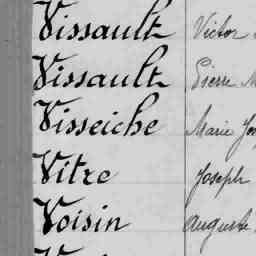 Vissault Victor
Vissault Pierre M
Visseiche Marie Jos
Vitre Joseph
Voisin Auguste